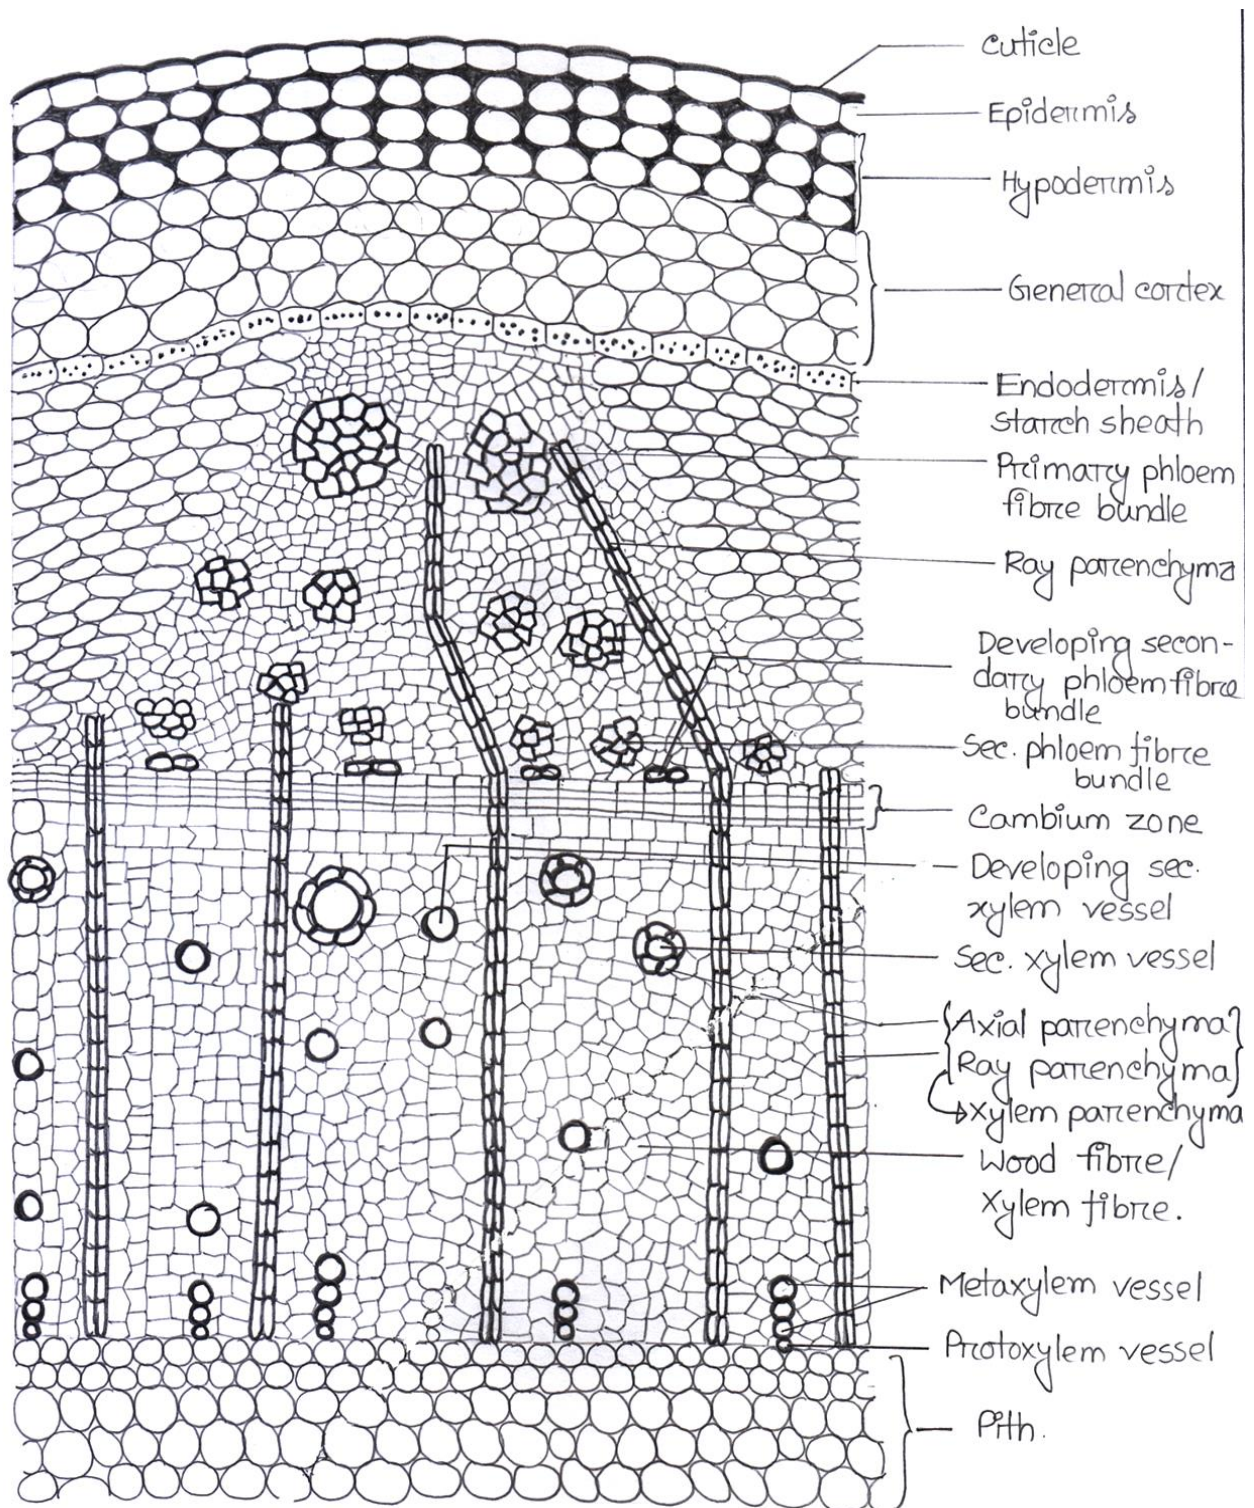 Cuticle
Epidermis
Hypodermis
General cortex
Endodermis/
starch sheath
Primary phloem
fibre bundle
Ray parenchyma
Developing secon-
dary phloem fibre
bundle
Sec. phloem fibre
bundle
Cambium zone
Developing sec.
xylem vessel
Sec. xylem vessel
Axial parenchyma
Ray parenchyma
Xylem parenchyma
Wood fibre/
Xylem fibre.
Metaxylem vessel
Protoxylem vessel
Pith.